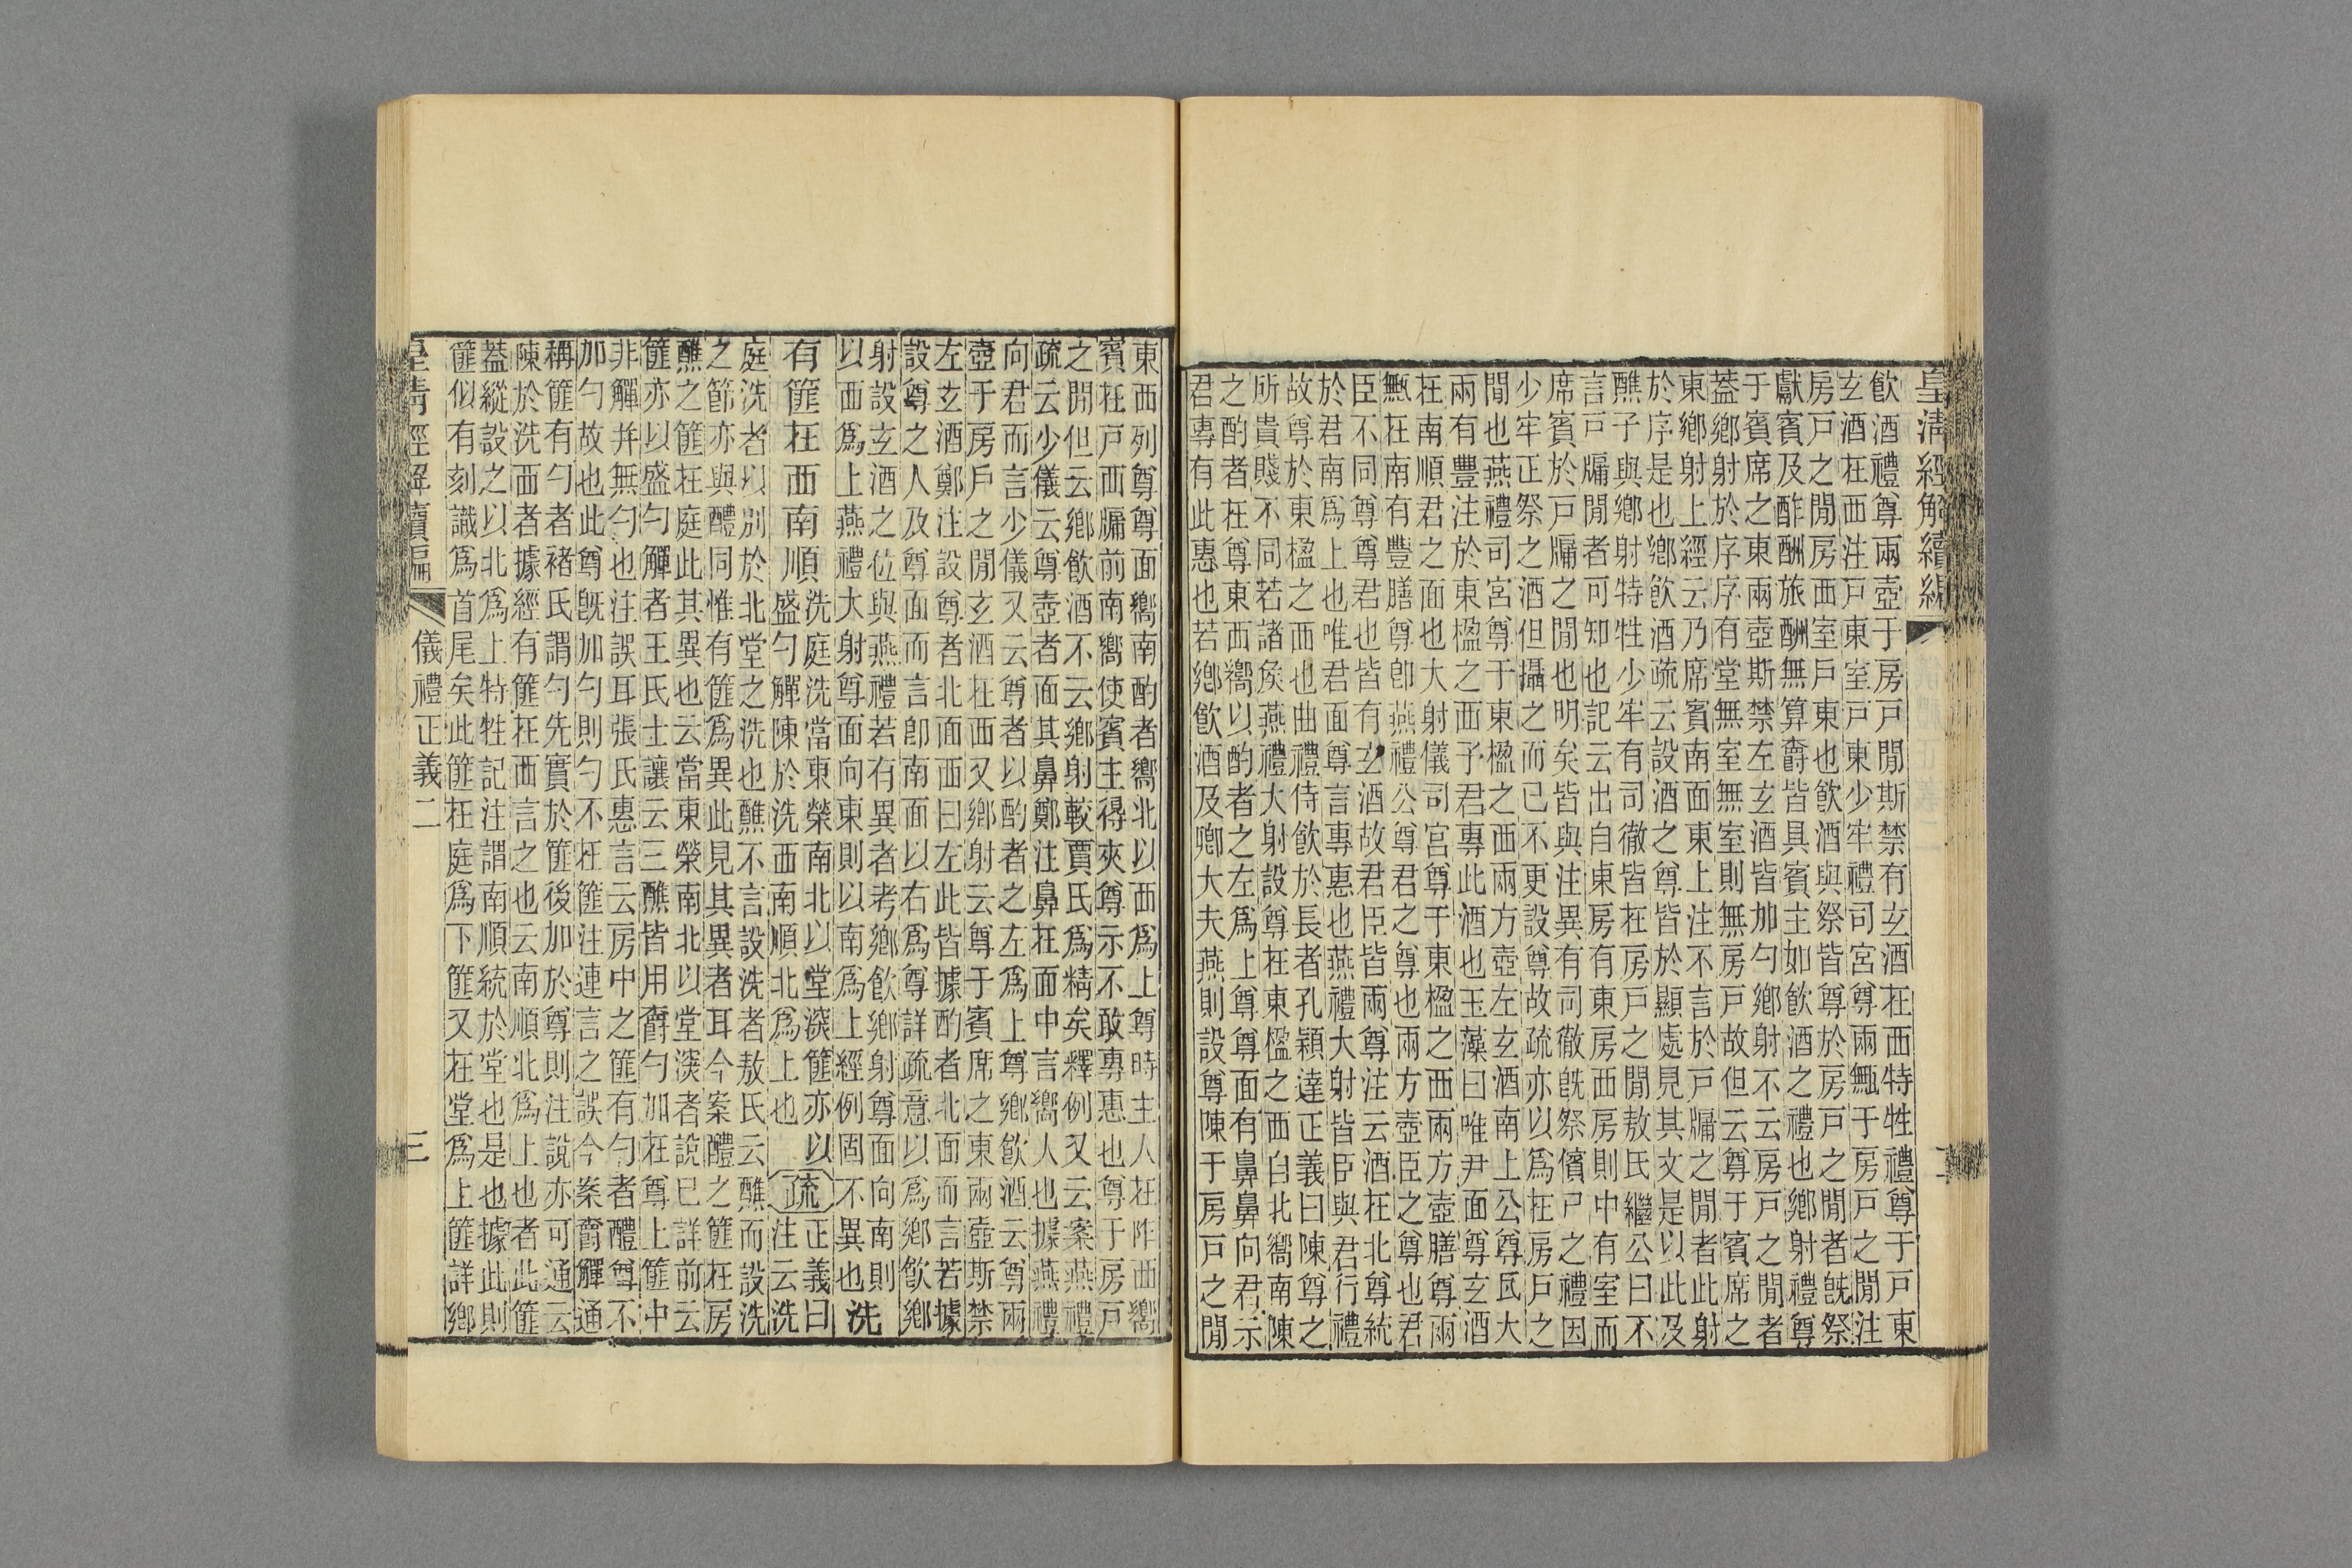 皇清經解續編
飲酒禮尊兩壺于房戸閒斯禁有玄酒在西特牲禮尊于戸東
玄酒在西注戸東室戸東少牢禮司宮尊兩甒于房戸之閒注
房戸之閒房西室戸東也飲酒與祭皆尊於房戸之閒者旣祭
獻賓及酢酬旅酬無算爵皆具賓主如飲酒之禮也鄉射禮尊
于賓席之東兩壺斯禁左玄酒皆加勺鄉射不云房戸之閒者
蓋鄉射於序序有堂無室無室則無房戸故但云尊于賓席之
東鄉射上經云乃席賓南面東上注不言於戸牖之閒者此射
於序是也鄉飲酒疏云設酒之尊皆於顯處見其文是以此及
醮子與鄉射特牲少牢有司徹皆在房戸之閒敖氏繼公曰不
言戸牖閒者可知也記云出自東房有東房西房則中有室而
席賓於戸牖之閒也明矣皆與注異有司徹旣祭儐尸之禮因
少牢正祭之酒但攝之而已不更設尊故疏亦以爲在房戸之
閒也燕禮司宮尊于東楹之西兩方壺左玄酒南上公尊瓦大
兩有豐注於東楹之西予君專此酒也玉藻曰唯尹面尊玄酒
在南順君之面也大射儀司宮尊于東楹之西兩方壺膳尊兩
甒在南有豐膳尊卽燕禮公尊君之尊也兩方壺臣之尊也君
臣不同尊君也皆有玄酒故君臣皆兩尊注云酒在北尊統
於君南爲上也唯君面尊言專惠也燕禮大射皆臣與君行禮
故尊於東楹之西也曲禮侍飲於長者孔穎達正義曰陳尊之
所貴賤不同若諸矦燕禮大射設尊在東楹之西自北嚮南陳
之酌者在尊東西嚮以酌者之左爲上尊尊面有鼻鼻向君示
君專有此惠也若鄉飲酒及卿大夫燕則設尊陳于房戸之閒
東西列尊尊面嚮南酌者嚮北以西爲上尊時主人在阼西嚮
賓在戸西牖前南嚮使賓主得夾尊示不敢專惠也尊于房戸
之閒但云鄉飲酒不云鄉射較賈氏爲精矣釋例又云案燕禮
疏云少儀云尊壺者面其鼻鄭注鼻在面中言嚮人也據燕禮
向君而言少儀又云尊者以酌者之左爲上尊鄉飲酒云尊兩
壺于房戸之閒玄酒在西又鄉射云尊于賓席之東兩壺斯禁
左玄酒鄭注設尊者北面西曰左此皆據酌者北面而言若據
設尊之人及尊面而言卽南面以右爲尊詳疏意以爲鄉飲鄉
射設玄酒之位與燕禮若有異者考鄉飲鄉射尊面向南則
以西爲上燕禮大射尊面向東則以南爲上經例固不異也
洗
有篚在西南順
洗庭洗當東榮南北以堂深篚亦以
盛勺觶陳於洗西南順北爲上也
疏
正義曰
注云洗
庭洗者以別於北堂之洗也醮不言設洗者敖氏云醮而設洗
之節亦與醴同惟有篚爲異此見其異者耳今案醴之篚在房
醮之篚在庭此其異也云當東榮南北以堂深者說已詳前云
篚亦以盛勺觶者王氏士讓云三醮皆用爵勺加在尊上篚中
非觶幷無勺也注誤耳張氏惠言云房中之篚有勺者醴尊不
加勺故也此尊旣加勺則勺不在篚注連言之誤今案爵觶通
稱篚有勺者褚氏謂勺先實於篚後加於尊則注說亦可通云
陳於洗西者據經有篚在西言之也云南順北爲上也者此篚
蓋縱設之以北爲上特牲記注謂南順統於堂也是也據此則
篚似有刻識爲首尾矣此篚在庭爲下篚又在堂爲上篚詳鄉
皇清經解續編
儀禮正義二
三